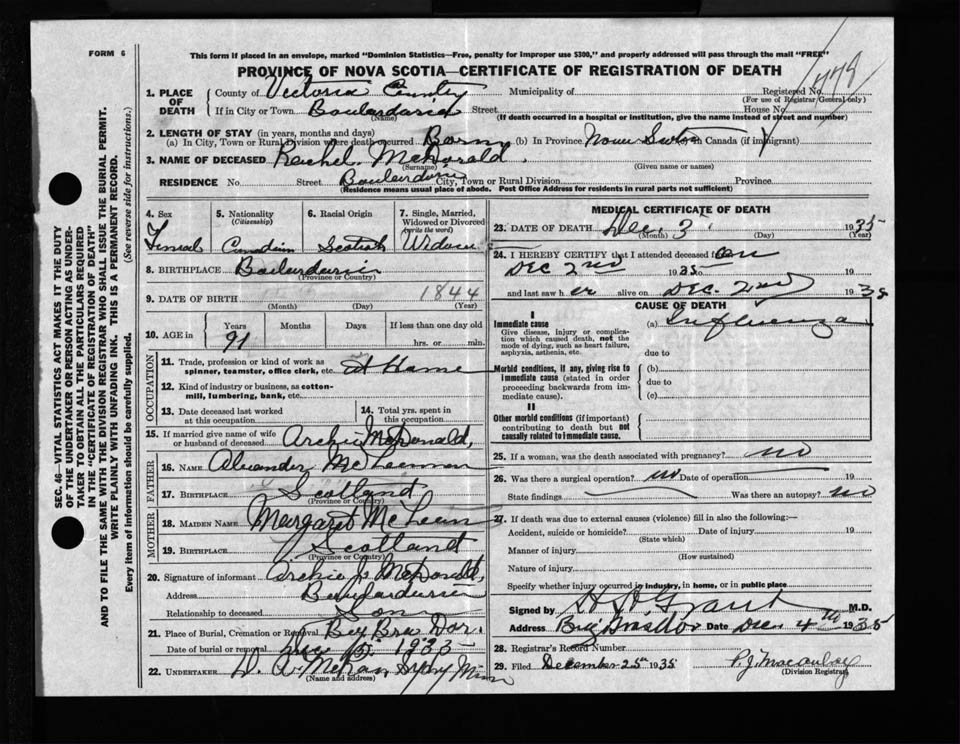 FORM 6
This form if placed in an envelope, marked "Dominion Statistics—Free, penalty for improper use $300," and properly addressed will pass through the mail "FREE"
PROVINCE OF NOVA SCOTIA—CERTIFICATE OF REGISTRATION OF DEATH
SEC. 46—VITAL STATISTICS ACT MAKES IT THE DUTY
OF THE UNDERTAKER OR PERSON ACTING AS UNDER-
TAKER TO OBTAIN ALL THE PARTICULARS REQUIRED
IN THE "CERTIFICATE OF REGISTRATION OF DEATH"
AND TO FILE THE SAME WITH THE DIVISION REGISTRAR WHO SHALL ISSUE THE BURIAL PERMIT.
WRITE PLAINLY WITH UNFADING INK. THIS IS A PERMANENT RECORD.
Every item of information should be carefully supplied. (See reverse side for instructions.)
1. PLACE OF DEATH
County of Victoria County Municipality of Registered No.
(For use of Registrar General only)
If in City or Town Boulardarie Street House No.
(Name) (If death occurred in a hospital or institution, give the name instead of street and number)
2. LENGTH OF STAY (in years, months and days)
(a) In City, Town or Rural Division where death occurred Born (b) In Province (c) in Canada (if immigrant)
3. NAME OF DECEASED Rachel McDonald.
(Surname) (Given name or names)
RESIDENCE No. Street Boulardarie City, Town or Rural Division Province
(Residence means usual place of abode. Post Office Address for residents in rural parts not sufficient)
4. Sex 5. Nationality (Citizenship) 6. Racial Origin 7. Single, Married, Widowed or Divorced (write the word)
Femal Canadian Scotish Widow
8. BIRTHPLACE Boulardarie
(Province or Country)
9. DATE OF BIRTH 1844
(Month) (Day) (Year)
10. AGE in Years Months Days If less than one day old
91 hrs. or min.
OCCUPATION
11. Trade, profession or kind of work as
spinner, teamster, office clerk, etc. at Home
12. Kind of industry or business, as cotton-
mill, lumbering, bank, etc.
13. Date deceased last worked at this occupation
14. Total yrs. spent in this occupation
15. If married give name of wife
or husband of deceased Archie McDonald,
FATHER
16. NAME
17. BIRTHPLACE Scotland
(Province or Country)
MOTHER
18. MAIDEN NAME Margaret McLean
19. BIRTHPLACE Scotland
(Province or Country)
20. Signature of informant Archie J. McDonald,
Address Boulardarie
Relationship to deceased Son
21. Place of Burial, Cremation or Removal
Date of burial or removal 1935
22. UNDERTAKER
(Name and address)
MEDICAL CERTIFICATE OF DEATH
23. DATE OF DEATH Dec. 3 1935
(Month) (Day) (Year)
24. I HEREBY CERTIFY that I attended deceased from
Dec 2nd 1935 to 19
and last saw h er alive on Dec. 2nd 1935
CAUSE OF DEATH
I
Immediate cause (a) Influenza
Give disease, injury or complica-
tion which caused death, not the
mode of dying, such as heart failure,
asphyxia, asthenia, etc.
due to
Morbid conditions, if any, giving rise to
immediate cause (stated in order
proceeding backwards from im-
mediate cause).
(b)
due to
(c)
II
Other morbid conditions (if important)
contributing to death but not
causally related to immediate cause.
25. If a woman, was the death associated with pregnancy? no
26. Was there a surgical operation? no Date of operation 19
State findings Was there an autopsy? no
27. If death was due to external causes (violence) fill in also the following:—
Accident, suicide or homicide? Date of injury 19
(State which)
Manner of injury
(How sustained)
Nature of injury
Specify whether injury occurred in industry, in home, or in public place
Signed by H H Grant M.D.
Address Date Dec. 4th 1935
28. Registrar's Record Number
29. Filed December 25th 1935 P.J. Macaulay
(Division Registrar)